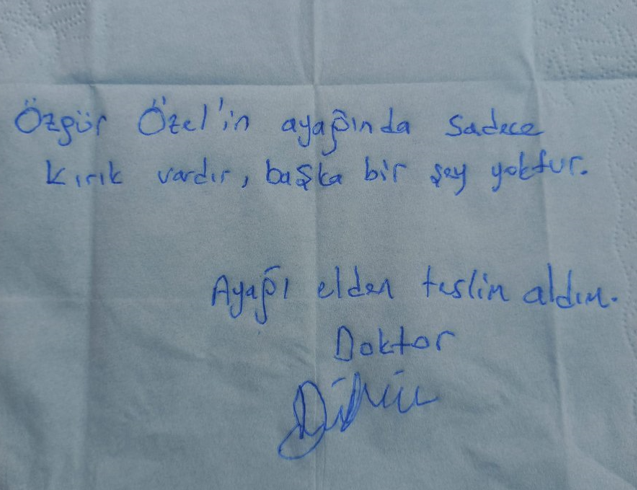 Özgür Özel'in ayağında sadece
kırık vardır, başka bir şey yoktur.
Ayağı elden teslim aldım.
Doktor